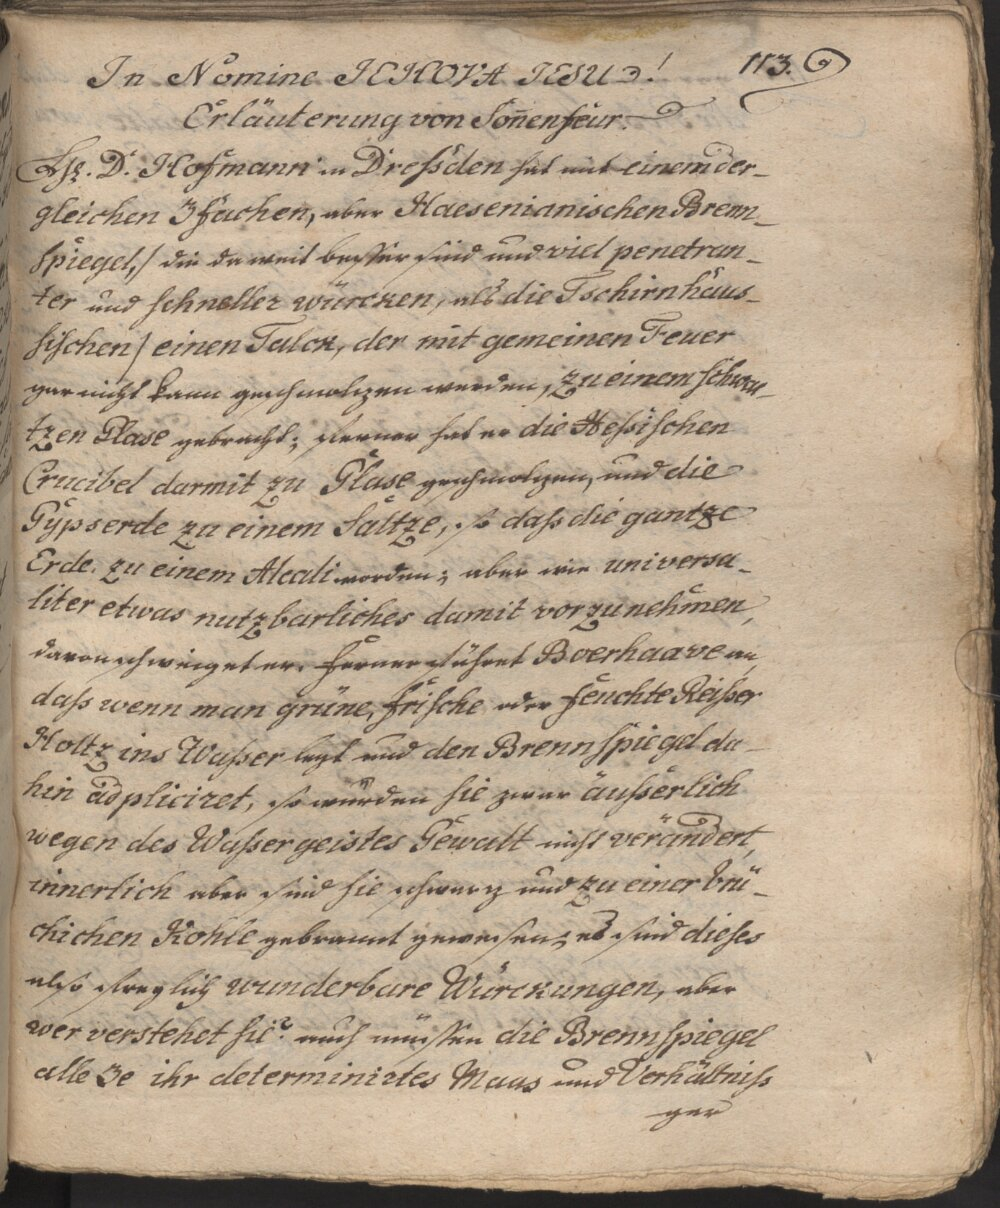 In Nomine JEHOVA JESU! 113.
Erläuterung von Sonnenfeur.
D. Hofmann in Dreßden hat mit einem der-
gleichen 3fachen, aber Haesenianischen Brenn-
spiegel,/ die da weit beßer sind und viel penetran-
ter und schneller würcken, als die Tschirnhäus-
sischen/ einen Talck, der mit gemeinen Feuer
gar nicht kann geschmoltzen werden, zu einem schwar-
tzen Glase gebracht; ferner hat er die Hessischen
Crucibel darmit zu Glase geschmoltzen, und die
Gypserde zu einem Saltze, so daß die gantze
Erde zu einem Alcali worden; aber wie universa-
liter etwas nutzbarliches damit vorzunehmen,
davon schweiget er. Ferner führet Boerhaave an,
daß wenn man grüne, frische oder feuchte Reißer
Holtz ins Waßer legt und den Brennspiegel da-
hin adpliciret, so würden sie zwar äußerlich
wegen des Waßergeistes Gewalt nicht verändert,
innerlich aber sind sie schwarz und zu einer brü-
chichen Kohle gebrannt gewesen; es sind dieses
also freylich wunderbare Würckungen, aber
wer verstehet sie? auch müssen die Brennspiegel
alle 3e ihr determinirtes Maas und Verhältniß
gar